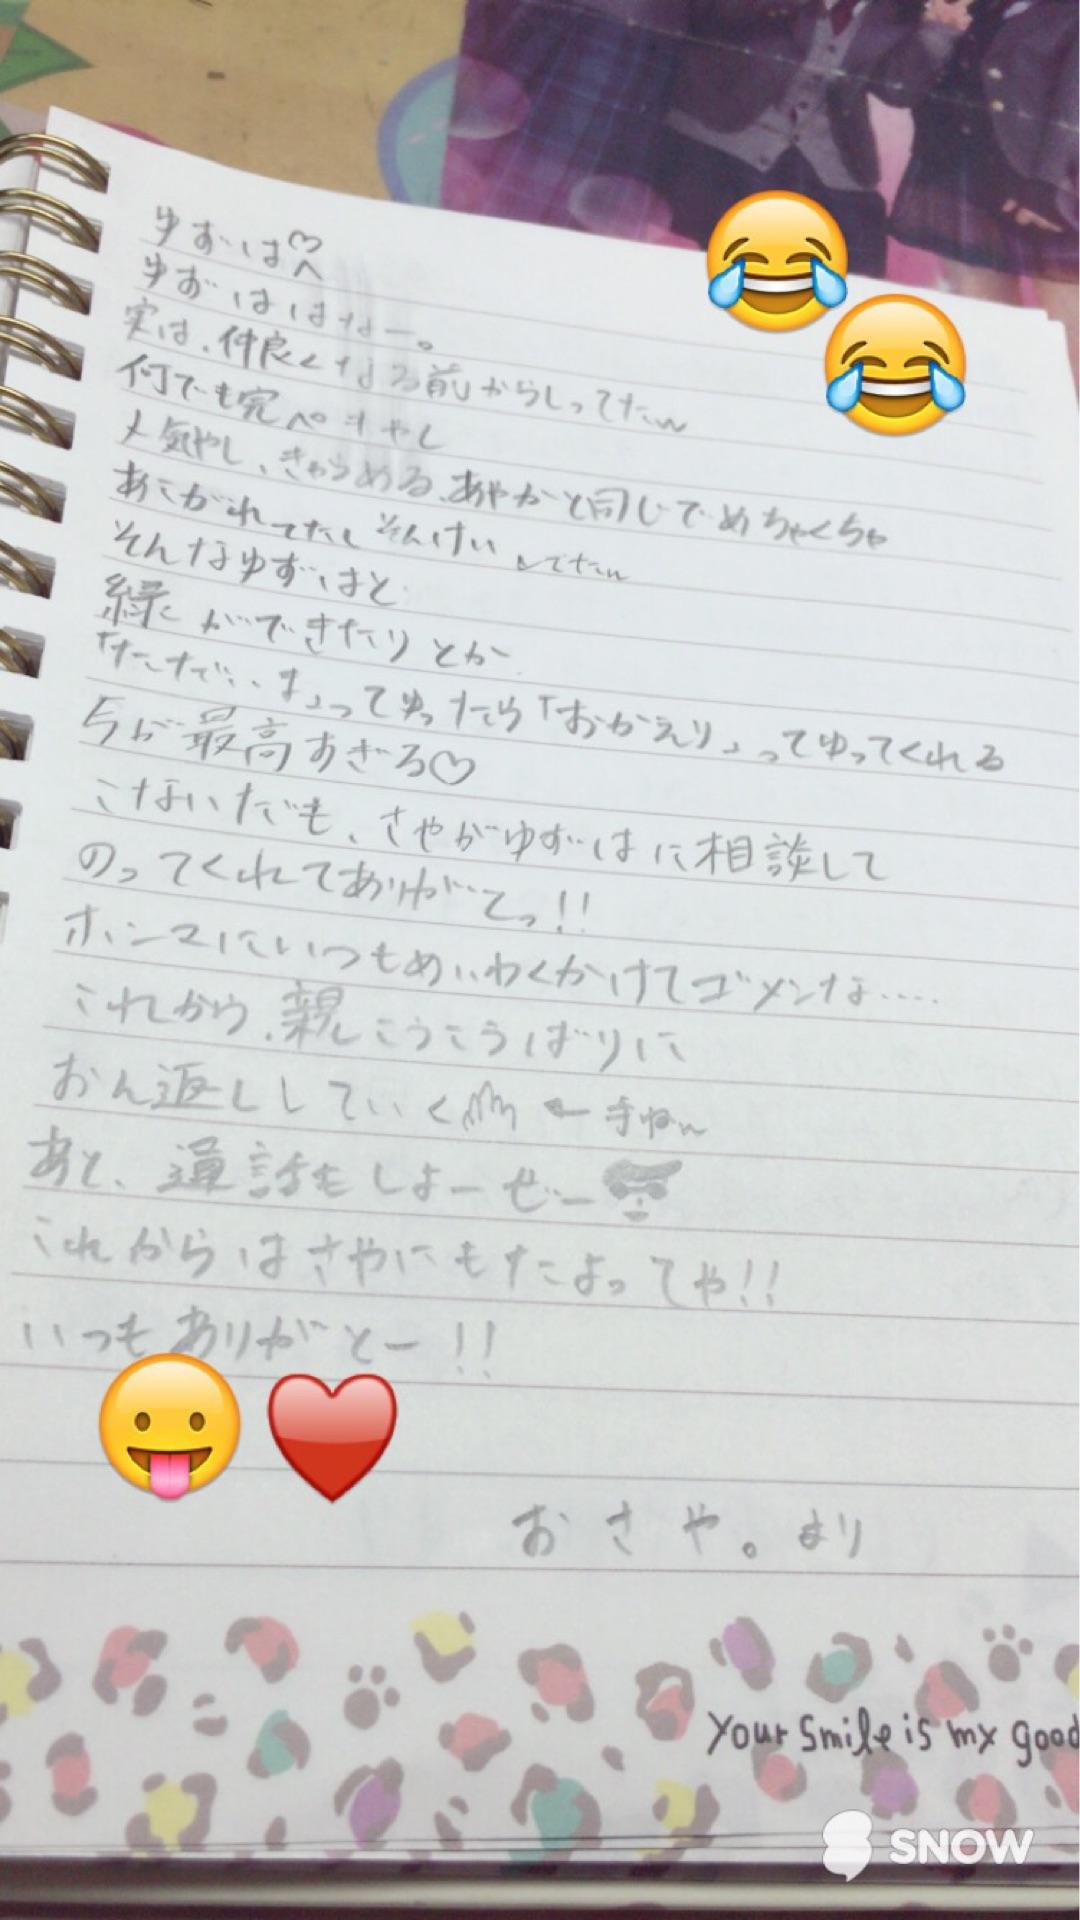 ゆずは♡へ
ゆずははなー。
実は、仲良くなる前からしってたw
何でも完ぺきやし
人気やし、きゅうめる、あやかと同じでめちゃくちゃ
あこがれてたし そんけいしてたw
そんなゆずはと
縁ができたりとか
「ただいま」ってゆったら「おかえり」ってゆってくれる
今が最高すぎる♡
こないだも、さやがゆずはに相談して
のってくれてありがとっ!!
ホンマにいつもめいわくかけてゴメンな.....
これから、親こうこうばりに
おん返ししていく ← 手ねw
あと、通話もしよーぜー
これからはさやにもたよってや!!
いつもありがとー!!
おさや。より
Your smile is my good
SNOW